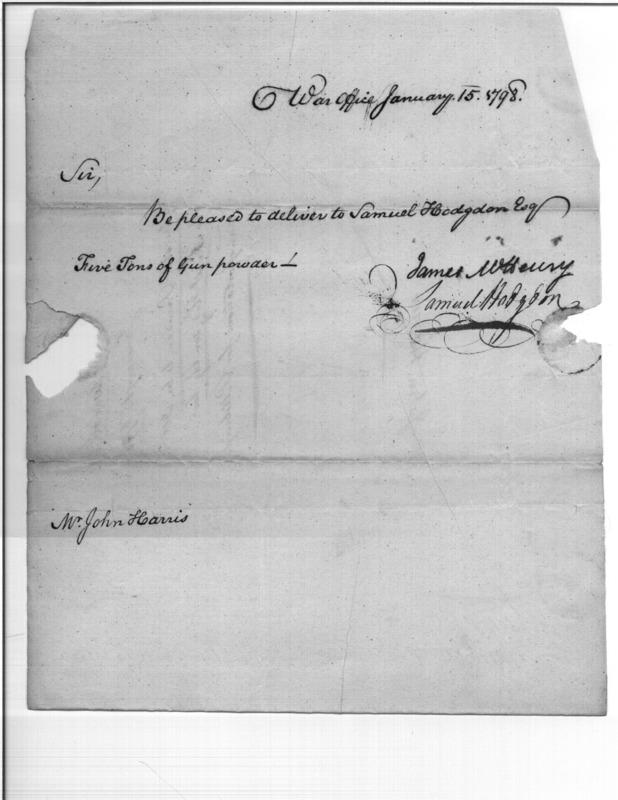 War Office January. 15. 1798.
Sir,
Be pleased to deliver to Samuel Hodgdon Esq
Five Tons of Gun powder —
James McHenry
Samuel Hodgdon
Mr. John Harris